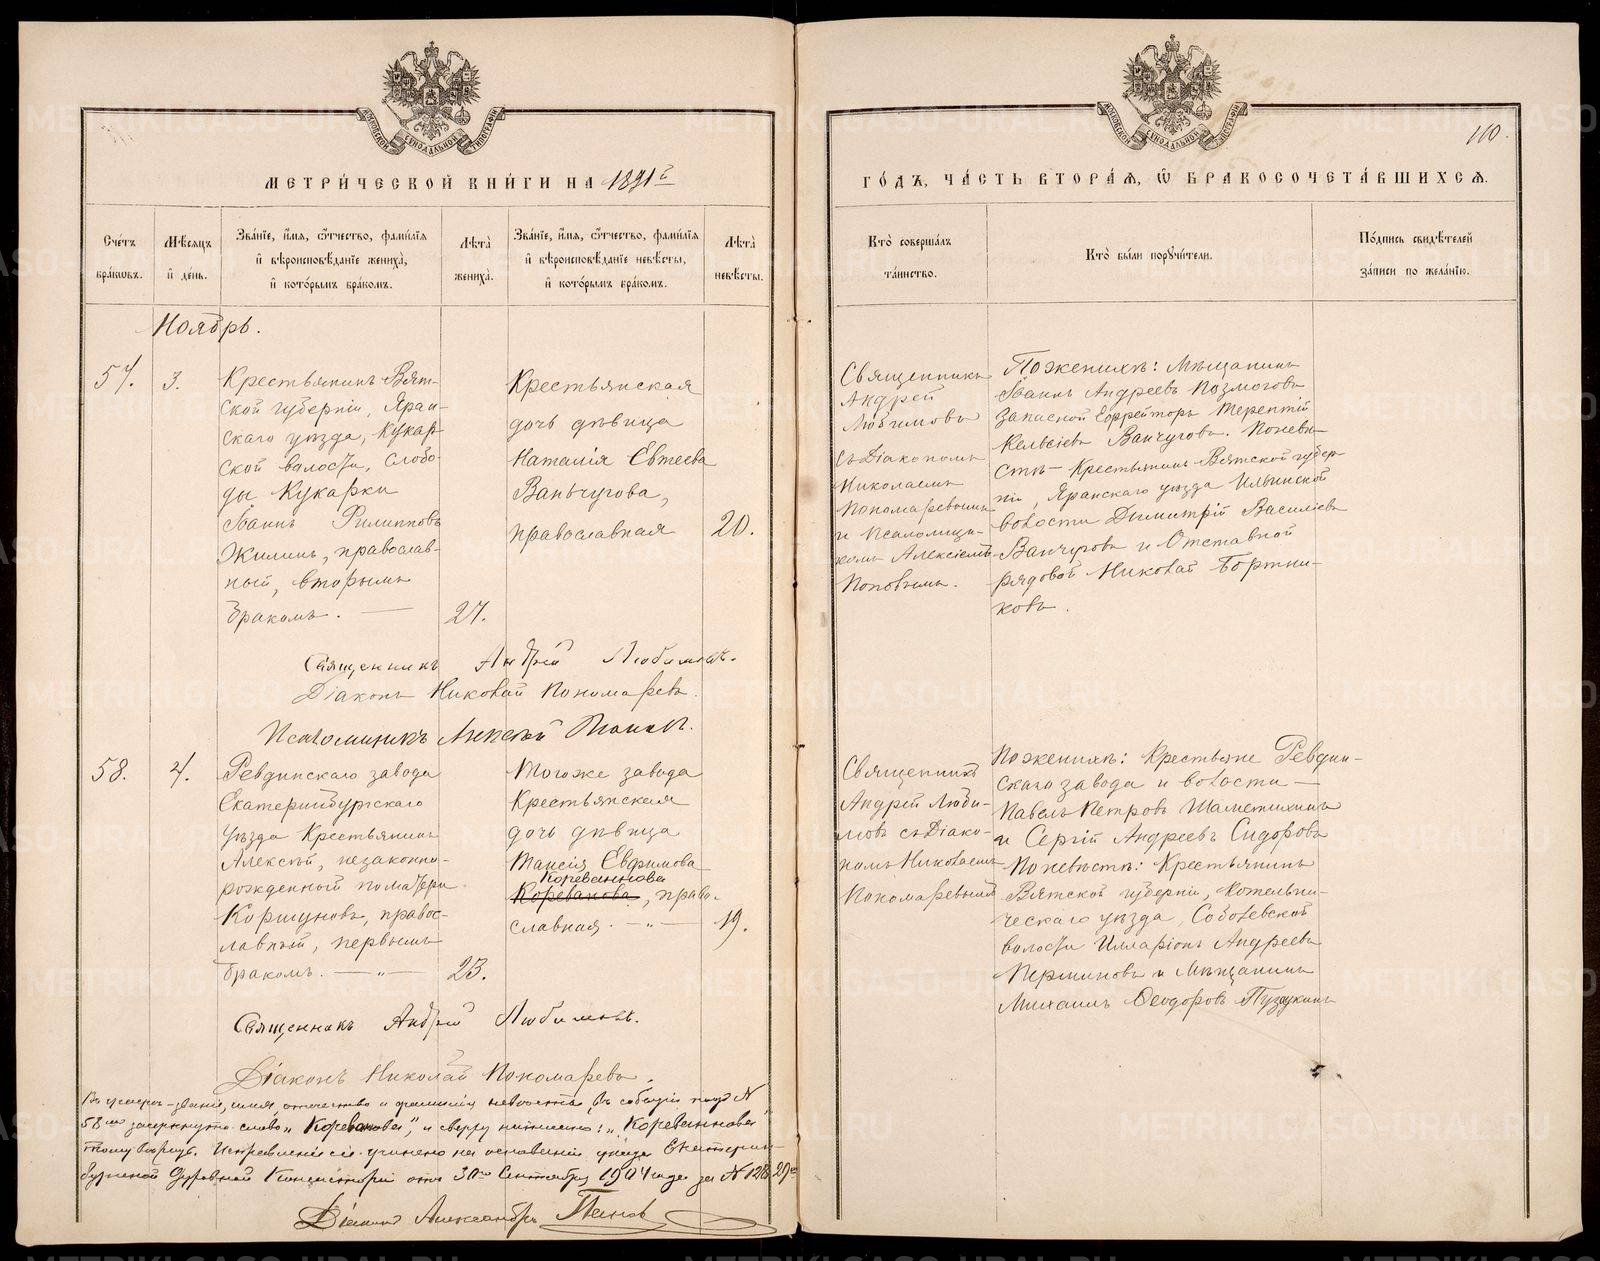 МОСКОВСКОЙ СѴНОДАЛЬНОЙ ТИПОГРАФІИ
МЕТРИ́ЧЕСКОЙ КНИ́ГИ НА 1891 й
Сче́тъ бра́ковъ.
Мѣ́сяцъ и҆ де́нь.
Зва́нїе, и҆́мя, ѻ҆́тчество, фами́лїя
и҆ вѣроисповѣ́данїе жениха̀,
и҆ кото́рымъ бра́комъ.
Лѣ́та жениха̀.
Зва́нїе, и҆́мя, ѻ҆́тчество, фами́лїя
и҆ вѣроисповѣ́данїе невѣ́сты,
и҆ кото́рымъ бра́комъ.
Лѣ́та невѣ́сты.
Ноябрь.
57.
3.
Крестьянинъ Вят-
ской губерніи, Яран-
скаго уѣзда, Кукар-
ской волости, Слобо-
ды Кукарки
Іоаннъ Филипповъ
Жилинъ, православ-
ный, вторымъ
бракомъ. —
27.
Крестьянская
дочь дѣвица
Наталія Евтеева
Ваньчугова,
православная
20.
Священникъ Андрей Любимовъ.
Діаконъ Николай Пономаревъ.
Псаломщикъ Алексѣй Поповъ.
58.
4.
Ревдинскаго завода
Екатеринбургскаго
уѣзда Крестьянинъ
Алексѣй, незаконно-
рожденный по матери
Коршуновъ, правос-
лавный, первымъ
бракомъ. — „ —
23.
Того же завода
Крестьянская
дочь дѣвица
Таисія Евфимова
Кореваннова
Кореванова, право-
славная. — „ —
19.
Священникъ Андрей Любимовъ.
Діаконъ Николай Пономаревъ.
званіе, имя, отчество и фамилія невѣсты, въ событіи подъ №
58 мъ зачеркнуто слово „Кореванова", и сверху написано: „Кореваннова"
тому вѣрить. Исправленіе сіе учинено на основаніи указа Екатерин-
бургской Духовной Консисторіи отъ 30го Сентября 1904 года за № 12829мъ
Діаконъ Александръ Пановъ
МОСКОВСКОЙ СѴНОДАЛЬНОЙ ТИПОГРАФІИ
110.
ГО́ДЪ, ЧА́СТЬ ВТОРА́Я, Ѡ҆ БРАКОСОЧЕТА́ВШИХСЯ.
Кто̀ соверша́лъ
та́инство.
Кто̀ бы́ли пору́чители.
По́дпись свидѣ́телей
за́писи по жела́нїю.
Священникъ
Андрей
Любимовъ
съ Діакономъ
Николаемъ
Пономаревымъ
и Псаломщи-
комъ Алексіемъ
Поповымъ.
По женихѣ: Мѣщанинъ
Іоаннъ Андреевъ Позмоговъ
Запасной Ефрейторъ Терентій
Кельсіевъ Ванчуговъ. По невѣ-
стѣ — Крестьянинъ Вятской губер-
ніи, Яранскаго уѣзда Ильинской
волости Димитрій Василіевъ
Ванчуговъ и Отставной
рядовой Николай Бортни-
ковъ.
Священникъ
Андрей Люби-
мовъ съ Діако-
номъ Николаемъ
Пономаревымъ
По женихѣ: Крестьяне Ревдин-
скаго завода и волости —
Павелъ Петровъ Шаметихинъ
и Сергій Андреевъ Сидоровъ
По невѣстѣ: Крестьянинъ
Вятской губерніи, Котельни-
ческаго уѣзда, Соболевской
волости Илларіонъ Андреевъ
Перминовъ и Мѣщанинъ
Михаилъ Ѳеодоровъ
METRIKI.GASO-URAL.RU